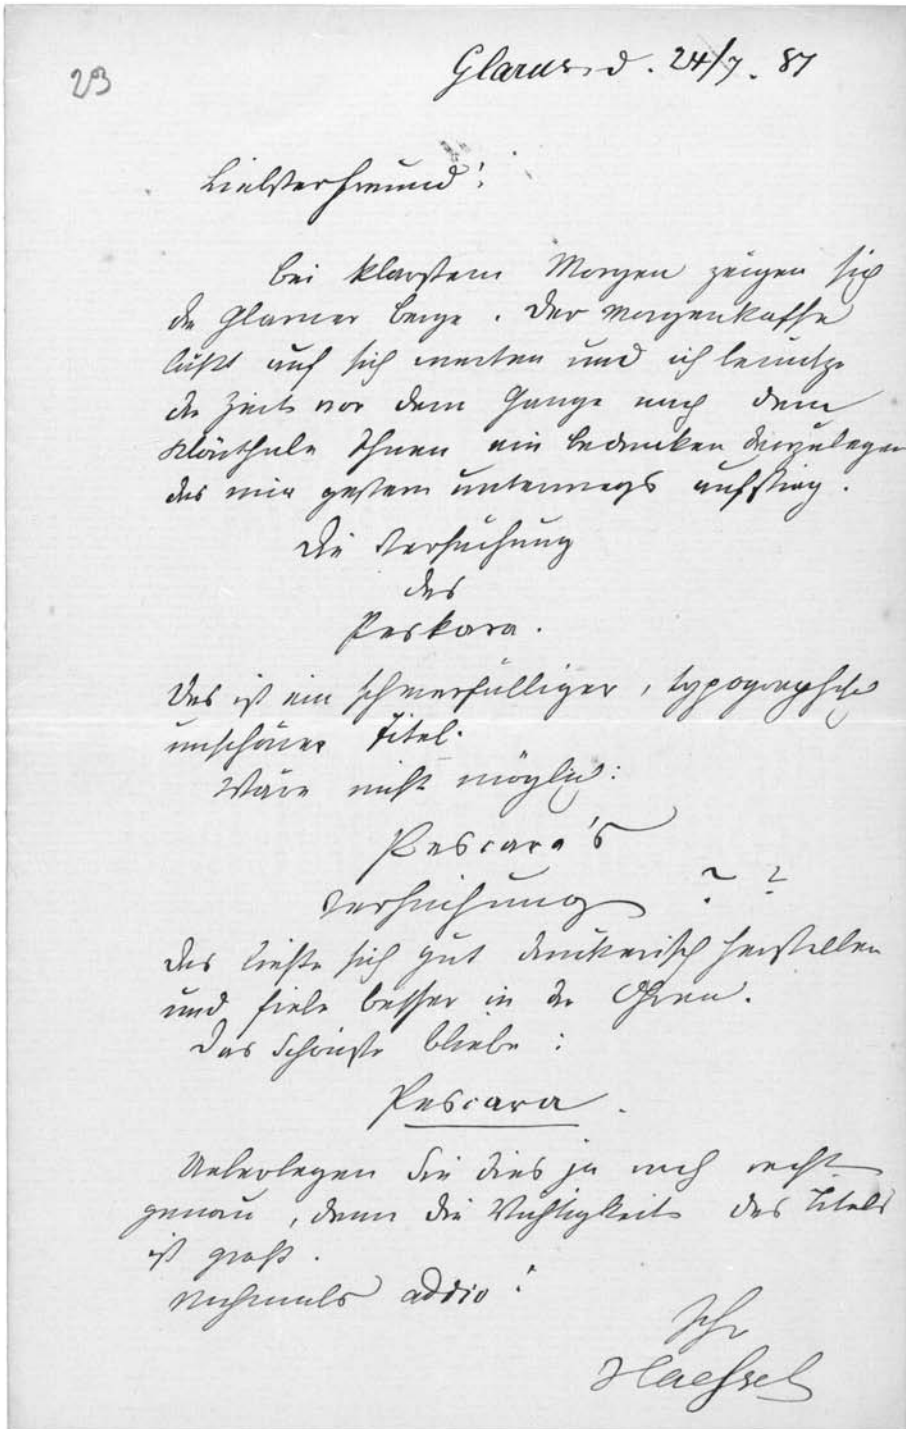 23
Glarus d. 24/7. 87
Liebster Freund!
Bei klarstem Morgen zeigen sich
die Glarner Berge. Der Morgenkaffe
läßt auf sich warten und ich benutze
die Zeit vor dem Gange nach dem
Klönthale Ihnen ein Bedenken darzulegen
das mir gestern unterwegs aufstieg.
Die Versuchung
des
Peskara.
Das ist ein schwerfälliger, typographisch
unschöner Titel.
Wäre nicht möglich:
Pescara's
Versuchung ? ?
Das ließe sich gut druckerisch herstellen
und fiele besser in die Ohren.
Das Schönste bliebe:
Pescara.
Ueberlegen Sie dies ja noch recht
genau, denn die Wichtigkeit des Titels
ist groß.
Nochmals addio!
Ihr
Haessel